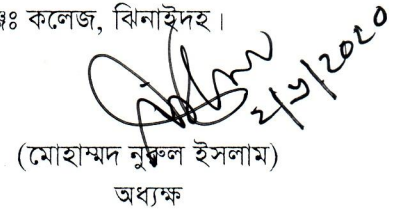 ঞ্জঃ কলেজ, ঝিনাইদহ।
২/১/২০২০
(মোহাম্মদ নুরুল ইসলাম)
অধ্যক্ষ